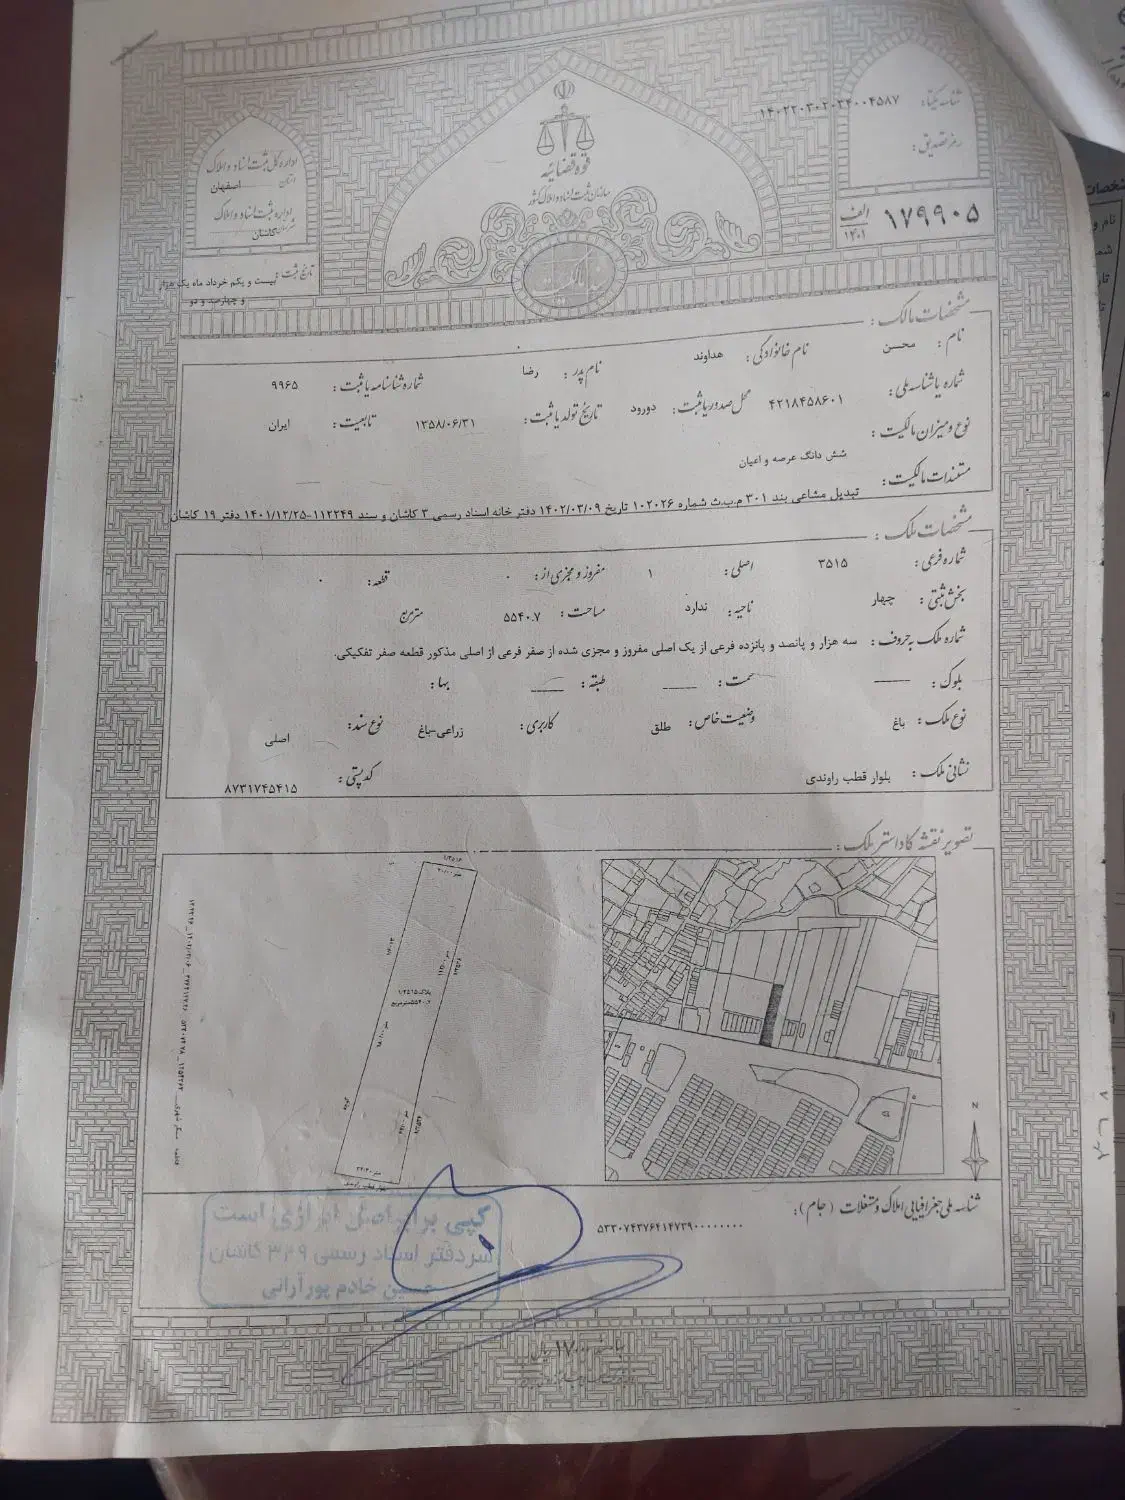 شناسه یکتا: ۱۴۰۲۲۰۳۰۲۰۳۴۰۰۴۵۸۷
رمز تصدیق:
الف
۱۴۰۱
۱۷۹۹۰۵
قوه قضائیه
سازمان ثبت اسناد و املاک کشور
سند مالکیت
اداره کل ثبت اسناد و املاک
استان اصفهان
اداره ثبت اسناد و املاک
شهرستان کاشان
تاریخ ثبت: بیست و یکم خرداد ماه یک هزار
و چهارصد و دو
مشخصات مالک:
نام: محسن نام خانوادگی: هداوند نام پدر: رضا شماره شناسنامه یا ثبت: ۹۹۶۵
شماره یا شناسه ملی: ۴۲۱۸۴۵۸۶۰۱ محل صدور یا ثبت: دورود تاریخ تولد یا ثبت: ۱۳۵۸/۰۶/۳۱ تابعیت: ایران
نوع و میزان مالکیت:
شش دانگ عرصه و اعیان
مستندات مالکیت:
تبدیل مشاعی بند ۳۰۱ م.ب.ث شماره ۱۰۲۰۲۶ تاریخ ۱۴۰۲/۰۳/۰۹ دفتر خانه اسناد رسمی ۳ کاشان و سند ۱۱۲۲۴۹-۱۴۰۱/۱۲/۲۵ دفتر ۱۹ کاشان
مشخصات ملک:
شماره فرعی: ۳۵۱۵ اصلی: ۱ مفروز و مجزی از: ۰ قطعه: ۰
بخش ثبتی: چهار ناحیه: ندارد مساحت: ۵۵۴۰.۷ متر مربع
شماره ملک به حروف: سه هزار و پانصد و پانزده فرعی از یک اصلی مفروز و مجزی شده از صفر فرعی از اصلی مذکور قطعه صفر تفکیکی.
بلوک: سمت: طبقه: بها:
نوع ملک: باغ وضعیت خاص: طلق کاربری: زراعی-باغ نوع سند: اصلی
نشانی ملک: بلوار قطب راوندی کد پستی: ۸۷۳۱۷۴۵۴۱۵
تصویر نقشه کاداستر ملک:
پلاک ۱/۳۵۱۵
۵۵۴۰.۷ مترمربع
N
شناسه ملی جغرافیایی املاک و مستغلات (جام):
۵۳۳۰۷۴۳۷۶۴۱۴۷۳۹۰۰۰۰۰۰۰۰
کپی برابر اصل افرازی است
سردفتر اسناد رسمی ۳۰۹ کاشان
حسین خادم پور آرانی